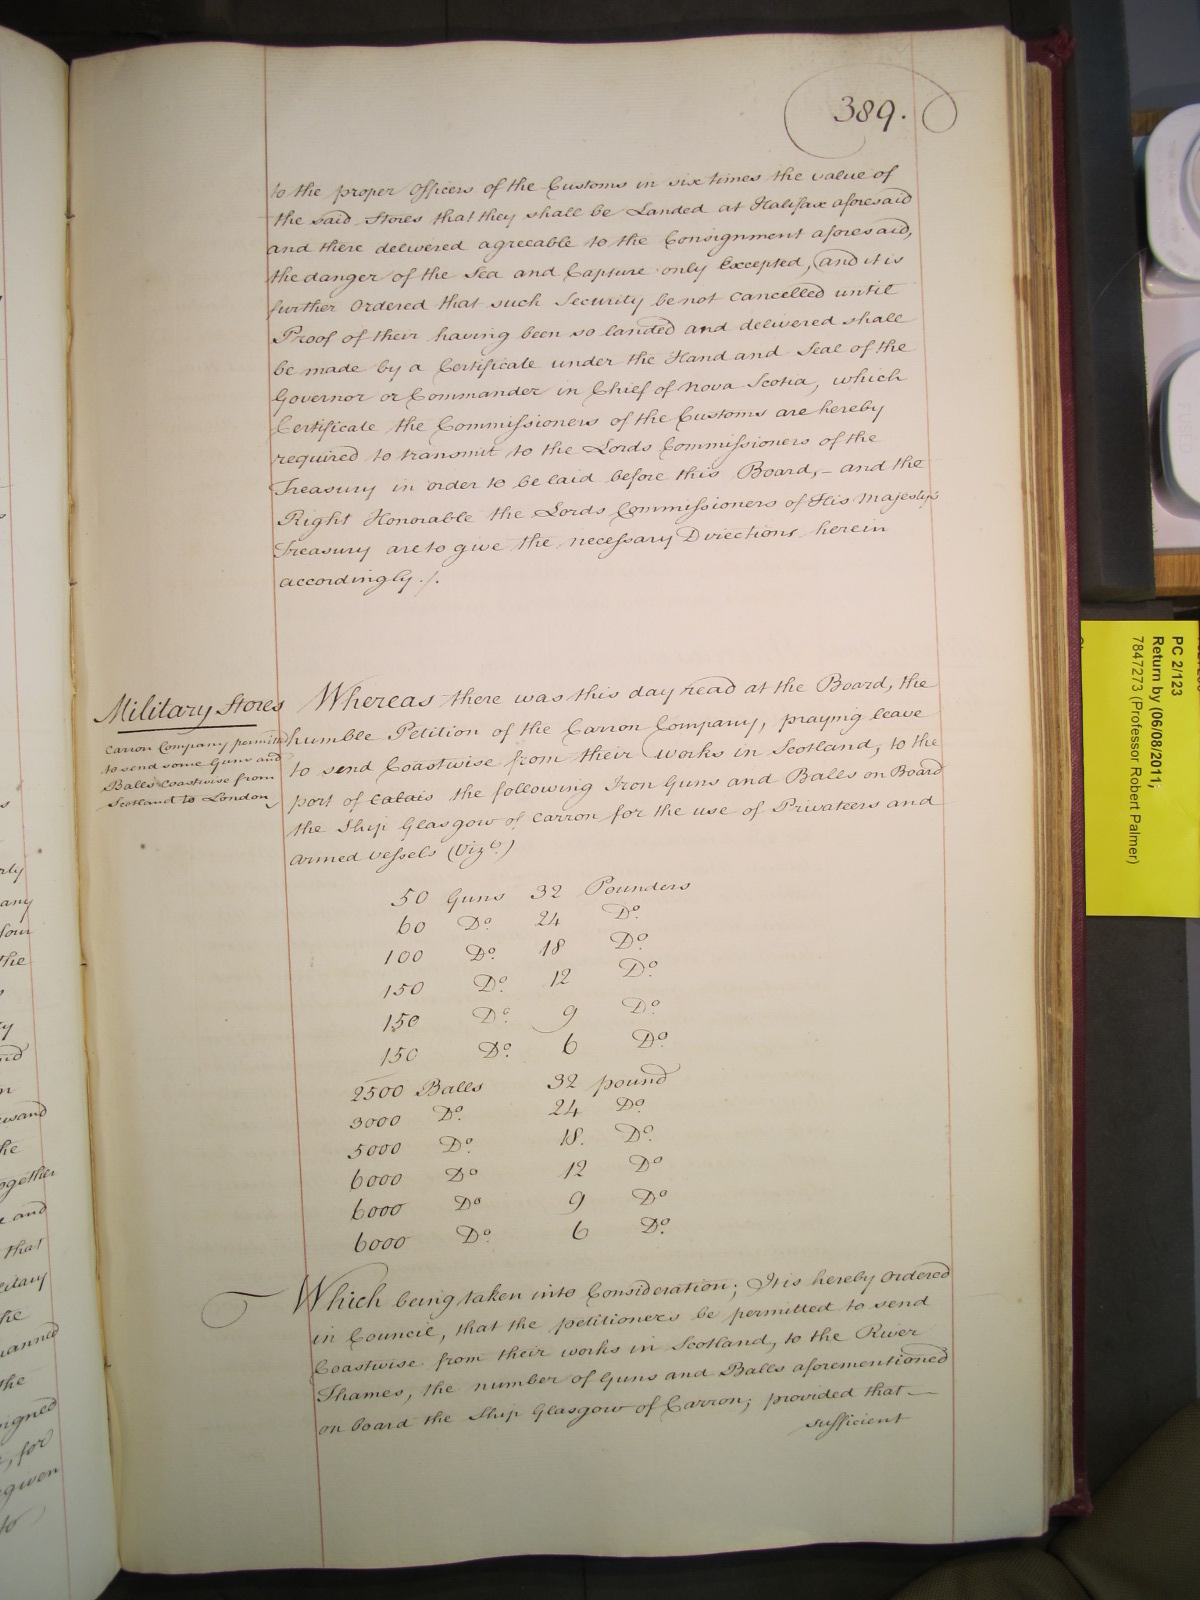 389.
to the proper Officers of the Customs in six times the value of
the said Stores that they shall be Landed at Halifax aforesaid
and there delivered agreeable to the Consignment aforesaid,
the danger of the Sea and Capture only Excepted, and it is
further Ordered that such Security be not cancelled until
Proof of their having been so landed and delivered shall
be made by a Certificate under the Hand and Seal of the
Governor or Commander in Chief of Nova Scotia, which
Certificate the Commissioners of the Customs are hereby
required to transmit to the Lords Commissioners of the
Treasury in order to be laid before this Board, - and the
Right Honorable the Lords Commissioners of His Majestys
Treasury are to give the necessary Directions herein
accordingly ./.
Military Stores
Carron Company permitted
to send some Guns and
Balls Coastwise from
Scotland to London
Whereas there was this day read at the Board, the
humble Petition of the Carron Company, praying leave
to send Coastwise from their works in Scotland, to the
port of Calais the following Iron Guns and Balls on Board
the Ship Glasgow of Carron for the use of Privateers and
Armed Vessels (Vizt.)
50 Guns 32 Pounders
60 Do. 24 Do.
100 Do. 18 Do.
150 Do. 12 Do.
150 Do. 9 Do.
150 Do. 6 Do.
2500 Balls 32 pound
3000 Do. 24 Do.
5000 Do. 18. Do.
6000 Do 12 Do
6000 Do 9 Do
6000 Do. 6 Do.
Which being taken into Consideration; It is hereby Ordered
in Council, that the petitioners be permitted to send
Coastwise from their works in Scotland, to the River
Thames, the number of Guns and Balls aforementioned
on board the Ship Glasgow of Carron; provided that —
sufficient
PC 2/123
Return by (06/08/2011;
7847273 (Professor Robert Palmer)